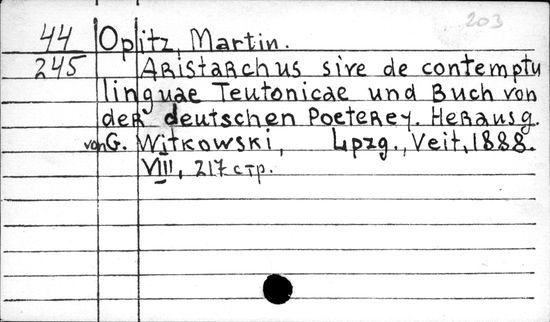 203
44 Opitz, Martin.
245 Aristarchus sive de contemptu
linguae Teutonicae und Buch von
der deutschen Poeterey. Herausg.
von G. Witkowski, Lpzg., Veit, 1888.
VIII, 217 стр.